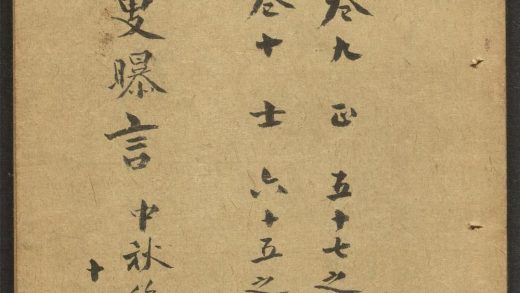 卷九 正 五十七之
卷十 士 六十五之
叟曝言 中秋
十